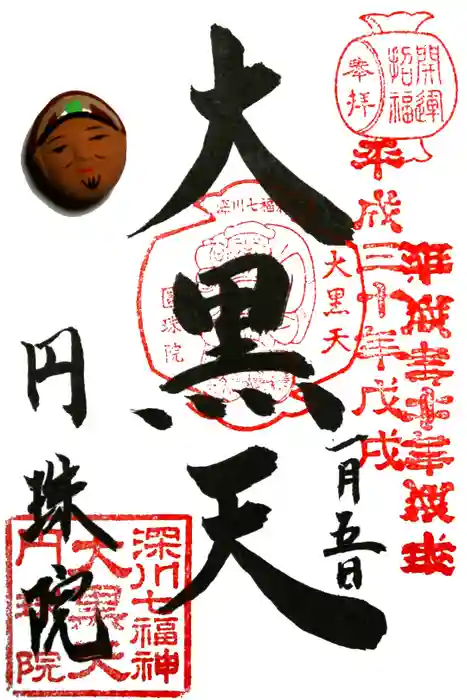 開運
招福
奉拝
平成三十年戊戌
一月五日
深川七福神
大黒天
円珠院
大黒天
円珠院
深川七福神
大黒天
円珠院